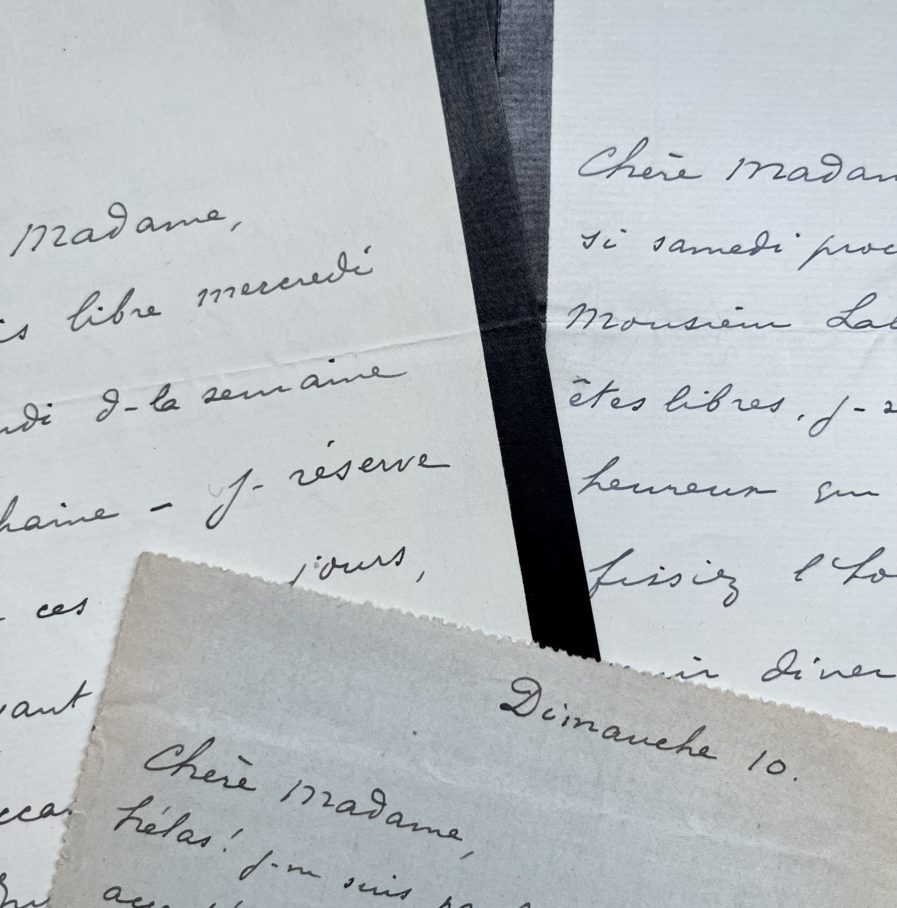 Madame,
libre mercredi
d-la semaine
haine - J- réserve
ces jours,
Chère Madam
si samedi proc
Monsieur Lal
êtes libres, j-
heureux qu
fissiez l'ho
diner
Dimanche 10.
Chère Madame,
hélas! j-n suis pa